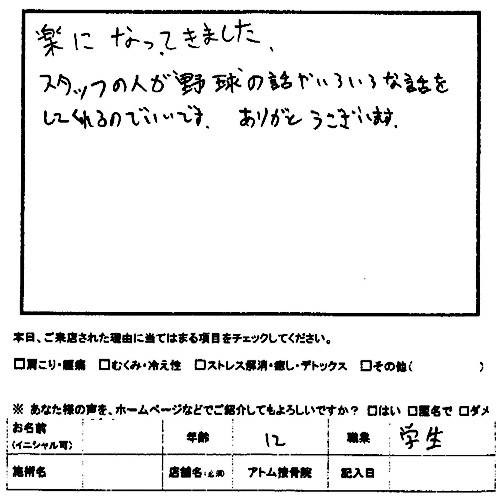 楽になってきました、
スタッフの人が野球の話やいろいろな話を
してくれるのでいいです。ありがとうございます。
本日、ご来店された理由に当てはまる項目をチェックしてください。
□肩こり・腰痛 □むくみ・冷え性 □ストレス解消・癒し・デトックス □その他( )
※ あなた様の声を、ホームページなどでご紹介してもよろしいですか？ □はい □匿名で □ダメ
お名前 (イニシャル可) 年齢 12 職業 学生
施術名 店舗名 アトム接骨院 記入日